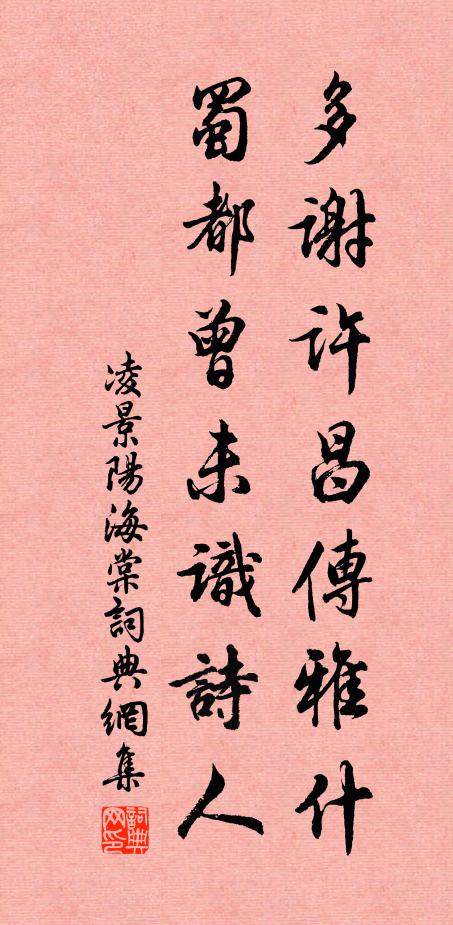 多謝許昌傳雅什
蜀都曾未識詩人
凌景陽海棠詞典網集
詞典网印